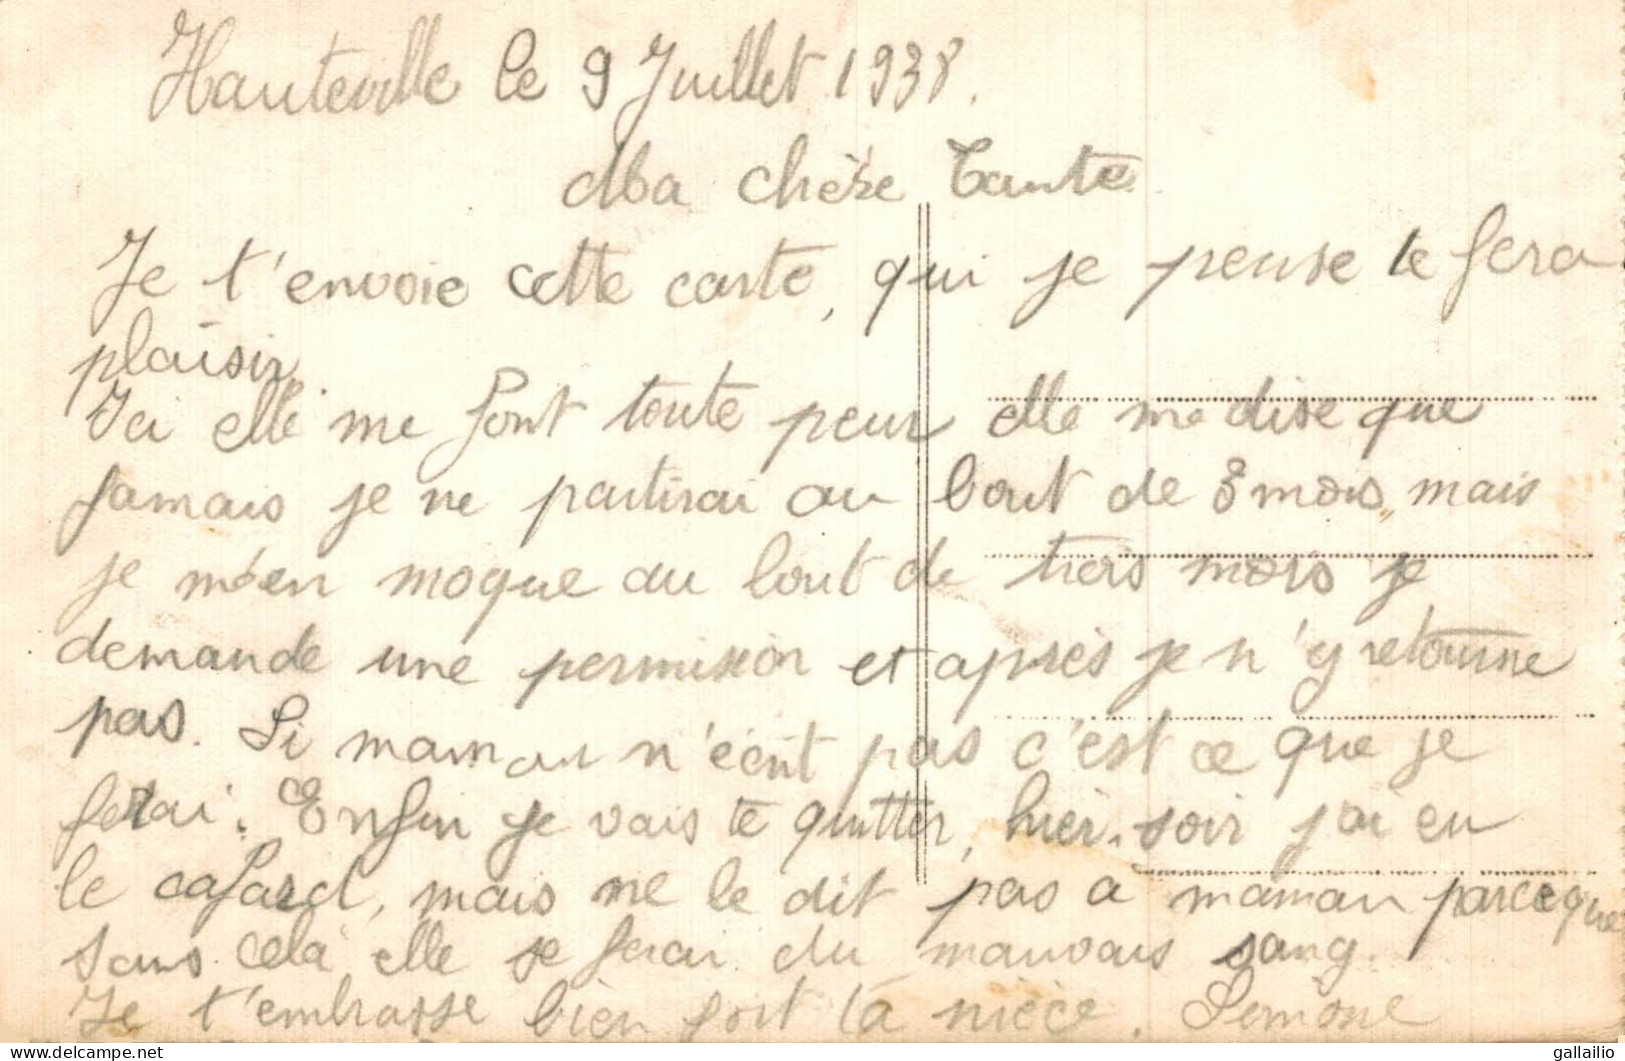 Hauteville le 9 Juillet 1938.
Ma chère Tante
Je t'envoie cette carte, qui je pense te fera
plaisir.
Ici elle me font toute peur elle me dise que
jamais je ne partirai au bout de 3 mois, mais
je m'en moque au bout de trois mois je
demande une permission et après je n'y retourne
pas. Si maman n'écrit pas c'est ce que je
ferai. Enfin je vais te quitter, hier soir j'ai eu
le cafard, mais ne le dit pas a maman parceque
sans cela elle se ferai du mauvais sang.
Je t'embrasse bien fort ta nièce. Simone
gallailio
www.delcampe.net